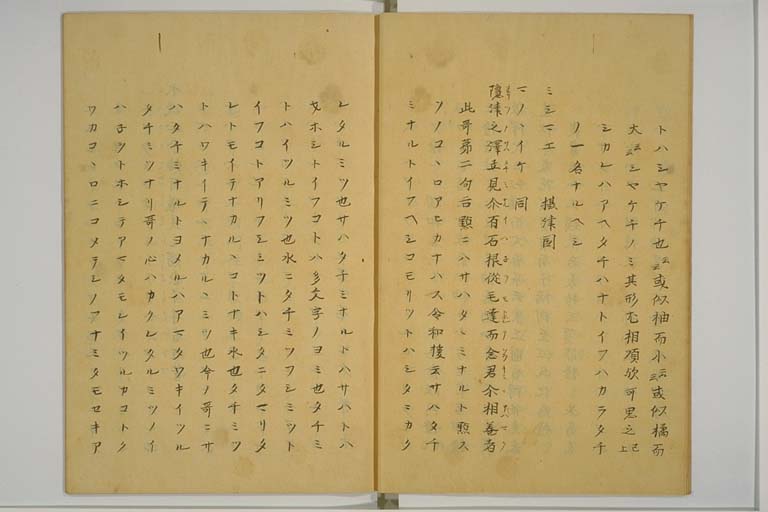 トハシヤケチ也云々或似柚而小云々或似橘而
大云々シヤケチノミ其形尤相須欤可思之已上
シカレハアヘタチハナトイフハカラタチ
ノ一名ナルヘシ
ミシマエ 摂津国
マノヽイケ 同
隠津之澤立見尓有石根従毛達而念君尓相巻者
此哥第二句古點ニハサハタヽミナルト點ス
ソノコヽロアヒカナハス今和換云サハタチ
ミナルトイフヘシコモリツトハシタニカク
レタルミツ也サハタチミナルトハサハトハ
オホシトイフコトハ多文字ノヨミ也タチミ
トハイツルミツ也水ニタチミツフシミツト
イフコトアリフシミツトハシタニタマリタ
レトモイテナカルヽコトナキ水也タチミツ
トハワキイテヽナカルヽミツ也今ノ哥ニサ
ハタチミナルトヨメルハアマタワキイツル
タチミツナリ哥ノ心ハカクレタルミツノイ
ハ子ヲトホシテアマタモレイツルカコトク
ワカコヽロニコメテシノフナミタモセキア